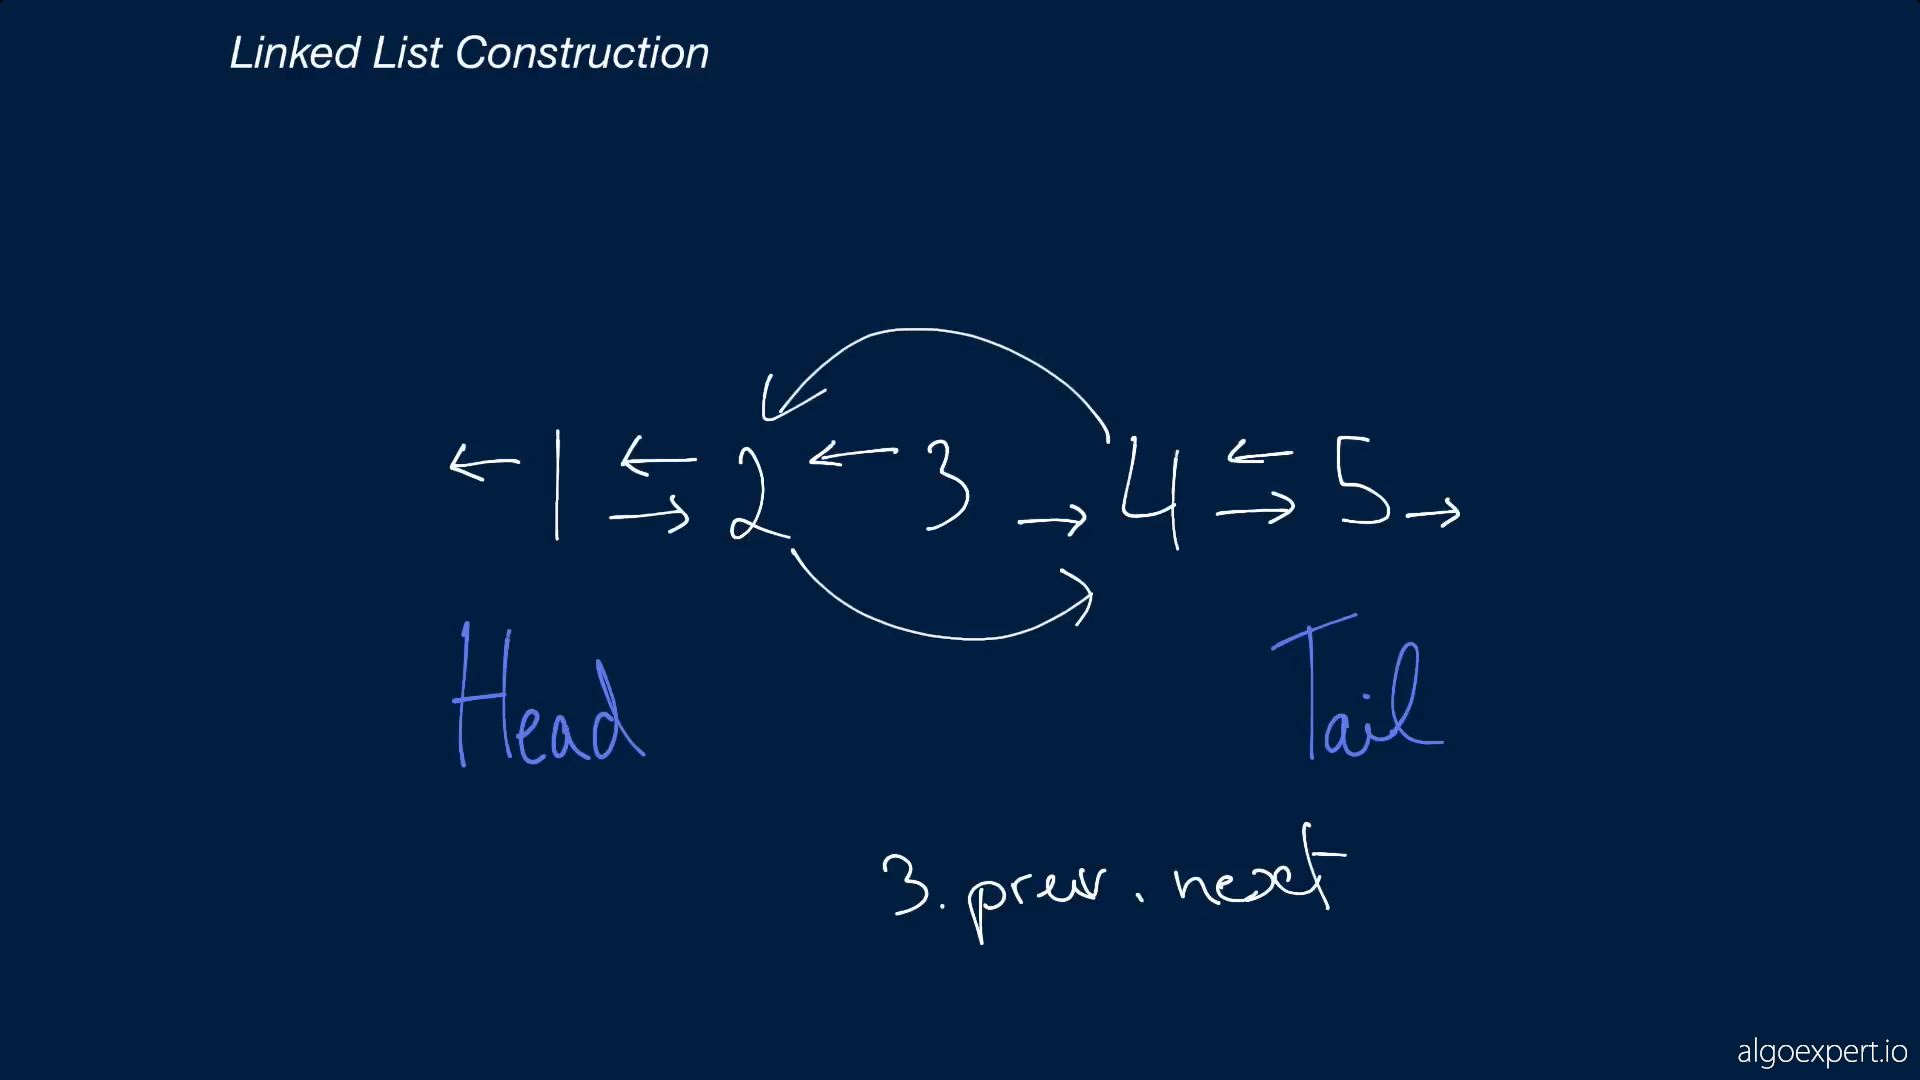 Linked List Construction
1 2 3 4 5
Head Tail
3.prev.next
algoexpert.io